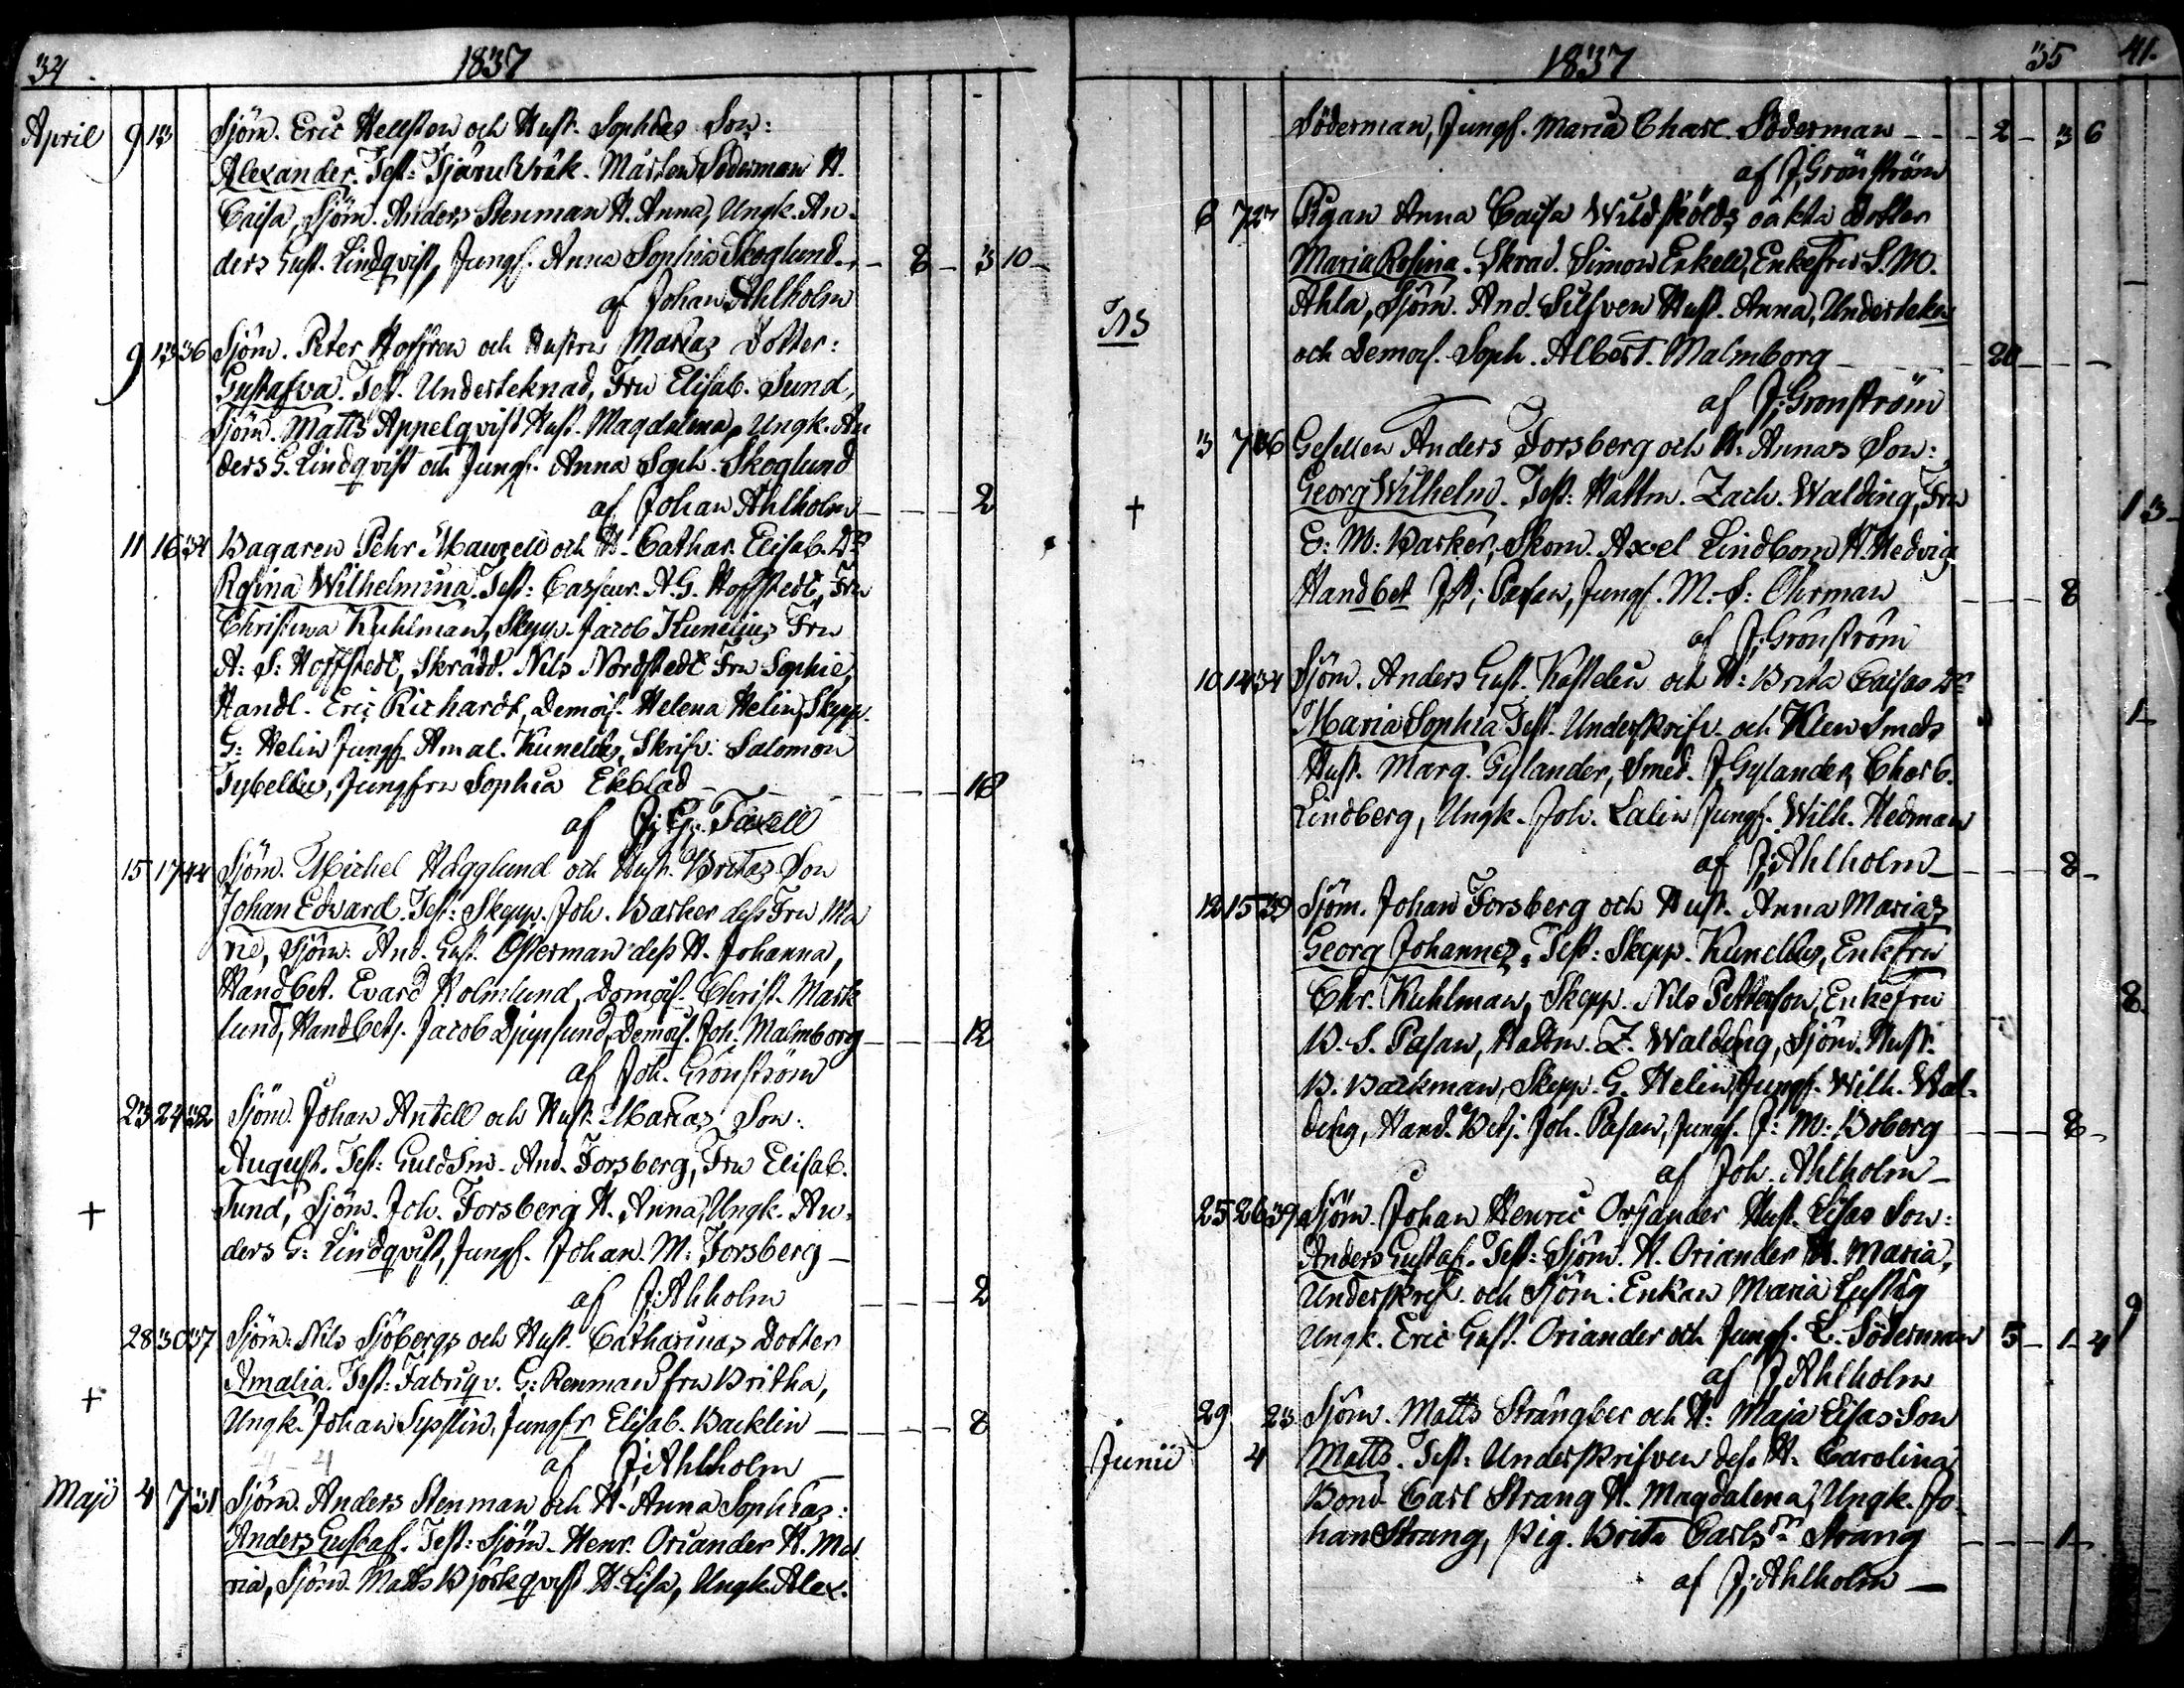 34. 1837
April 9 13 Sjöm. Eric Hellsten och Hust. Sophias Son:
Alexander. Test: Tjäru Vräk. Mårten Söderman H.
Caisa, Sjöm. Anders Stenman H. Anna, Ungk. An-
ders Gust. Lindqvist, Jungf. Anna Sophia Skoglund - 8 - 3 10 -
af Johan Ahlholm
9 13 36 Sjöm. Peter Hoffren och Hustru Marias Dotter:
Gustafva. Test. Underteknad, Fru Elisab. Sund,
Sjöm. Matts Appelqvist Hust. Magdalena, Ungk. An
ders G. Lindqvist och Jungf. Anna Soph. Skoglund
af Johan Ahlholm - 2
11 16 34 Bagaren Pehr Manzell och H. Cathar. Elisab. Dr
Rosina Wilhelmina. Test: Casseur. A. G. Hoffstedt, Fru
Christina Kuhlman, Skepp. Jacob Kunelius Fru
A: S: Hoffstedt, Skrädd. Nils Nordstedt Fru Sophie,
Handl. Eric Richardt, Demois. Helena Helin, Skepp.
G: Helin Jungf. Amal. Kunelius, Skrifv. Salomon
Tybelius, Jungfru Sophia Ekblad - 16
af J. G. Taxell
15 17 44 Sjöm. Michel Hägglund och Hust. Britas Son
Johan Edvard. Test: Skepp. Joh. Barker dess Fru Ma
rie, Sjöm: And. Gust. Österman dess H. Johanna,
Handbet. Evard Holmlund, Demois. Christ. Mark
lund, Handbetj. Jacob Djupsund, Demois. Joh. Malmborg - 12
af Joh. Grönström
23 24 32 Sjöm. Johan Antell och Hust. Marias Son:
August. Test: GuldSm. And. Forsberg, Fru Elisab.
+ Sund, Sjöm. Joh. Forsberg H. Anna, Ungk. An-
ders G: Lindqvist, Jungf. Johan. M: Forsberg -
af J: Ahlholm - 2
28 30 37 Sjöm: Nils Sjöbergs och Hust. Catharinas Dotter
+ Amalia. Test: Fabriqv. G: Renman Fru Britha,
Ungk. Johan Sipstin, Jungfr Elisab. Backlin - 8
4 - 4 af J: Ahlholm
Maji 4 7 31 Sjöm. Anders Stenman och H. Anna Sophias:
Anders Gustaf. Test: Sjöm. Henr. Oriander H. Ma-
ria, Sjöm. Matts Björkqvist H. Lisa, Ungk. Alex.
1837 35 41.
Söderman, Jungf. Maria Charl. Söderman - 2 - 3 6
af J. Grönström
6 7 27 Pigan Anna Caisa Wildskölds oäkta dotter
Maria Rosina. Skräd. Simon Enkell, Enkefru S. M.
Ahla, Sjöm. And. Silfven Hust. Anna, Underteknad
och Demois. Soph. Albert. Malmborg - 20
af J: Grönström
3 7 36 Gesellen Anders Forsberg och H: Annas Son:
+ Georg Wilhelm. Test: Hattm. Zach. Walding, Fru 13
E: M: Barker, Skom. Axel Lindbom H. Hedvig
Handbet J. A: Pasan, Jungf. M. S: Öhrman - 8
af J: Grönström
10 14 34 Sjöm. Anders Gust. Kastelin och H: Brita Caisas Dr
Maria Sophia Test. Underskrifv. och Klen Smeds 1
Hust. Marg. Gylander, Smed. J. Gylander, Char b.
Lindberg, Ungk. Joh. Lalin Jungf. Wilh. Hedman
af J: Ahlholm - 8
12 15 39 Sjöm. Johan Forsberg och Hust. Anna Marias
Georg Johannes. Test: Skepp. Kunelius, Enkefru
Chr. Kuhlman, Skepp. Nils Petterson, Enkefru 8
B. S. Pasan, Hattm. Z. Walding, Sjöm. Hust.
B. Backman, Skepp. G. Helin, Jungf. Wilh. Wal-
ding, Hand. Betj. Joh. Pasan, Jungf. J: M: Boberg - 8
af Joh. Ahlholm -
25 26 39 Sjöm. Johan Henric Orjander Hust. Lisas Son:
Anders Gustaf. Test: Sjöm. H. Oriander H. Maria,
Underskrif. och Sjöm: Enkan Maria Lustig
Ungk. Eric Gust. Oriander och Jungf. L. Söderman 5 - 1 - 4 9
af J. Ahlholm
29 23 Sjöm. Matts Strångber och H: Maja Lisas Son
Junii 4 Matts. Test: Underskrifven dess H. Carolina
Bond. Carl Strang H. Magdalena, Ungk. Jo-
han Strang, Pig. Brita Carlsdr Strang - 1
af J: Ahlholm -